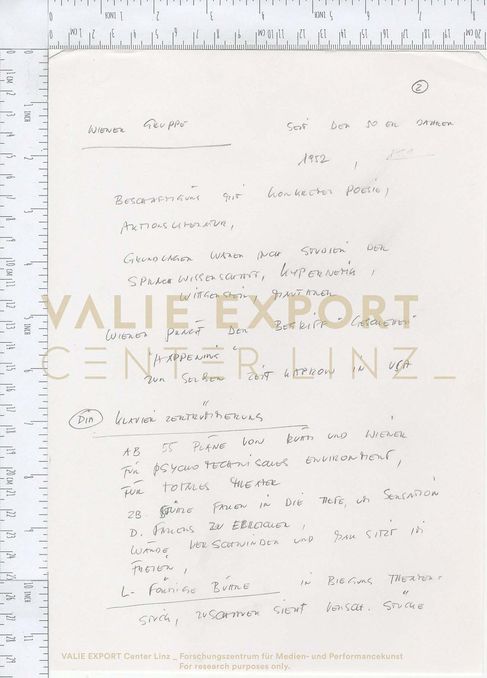 2
WIENER GRUPPE SEIT DEN 50ER JAHREN
1952,
BESCHÄFTIGUNG MIT KONKRETER POESIE,
AKTIONSLITERATUR,
GRUNDLAGEN WAREN STUDIEN DER
SPRACHWISSENSCHAFT, KYBERNETIK,
WITTGENSTEIN, MAUTHNER
WIENER PRÄGT DEN BEGRIFF "GESCHEHEN"
"HAPPENING"
ZUR SELBEN ZEIT KAPROW IN USA
DIA KLAVIERZERTRÜMMERUNG
AB 55 PLÄNE VON RÜHM UND WIENER
FÜR PSYCHOTECHNISCHES ENVIRONMENT,
FÜR TOTALES THEATER
ZB. STÜHLE FALLEN IN DIE TIEFE, UM SENSATION
D. FALLENS ZU ERREICHEN,
WÄNDE VERSCHWINDEN UND MAN SITZT IM
FREIEN,
L-FÖRMIGE BÜHNE IN BIEGUNG THEATER-
STÜCK, ZUSCHAUER SIEHT VERSCH. STÜCKE
VALIE EXPORT
CENTER LINZ_
VALIE EXPORT Center Linz _ Forschungszentrum für Medien- und Performancekunst
For research purposes only.